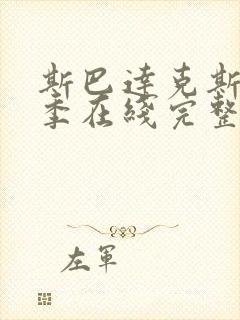 斯巴達克斯
季在綫完整
左軍